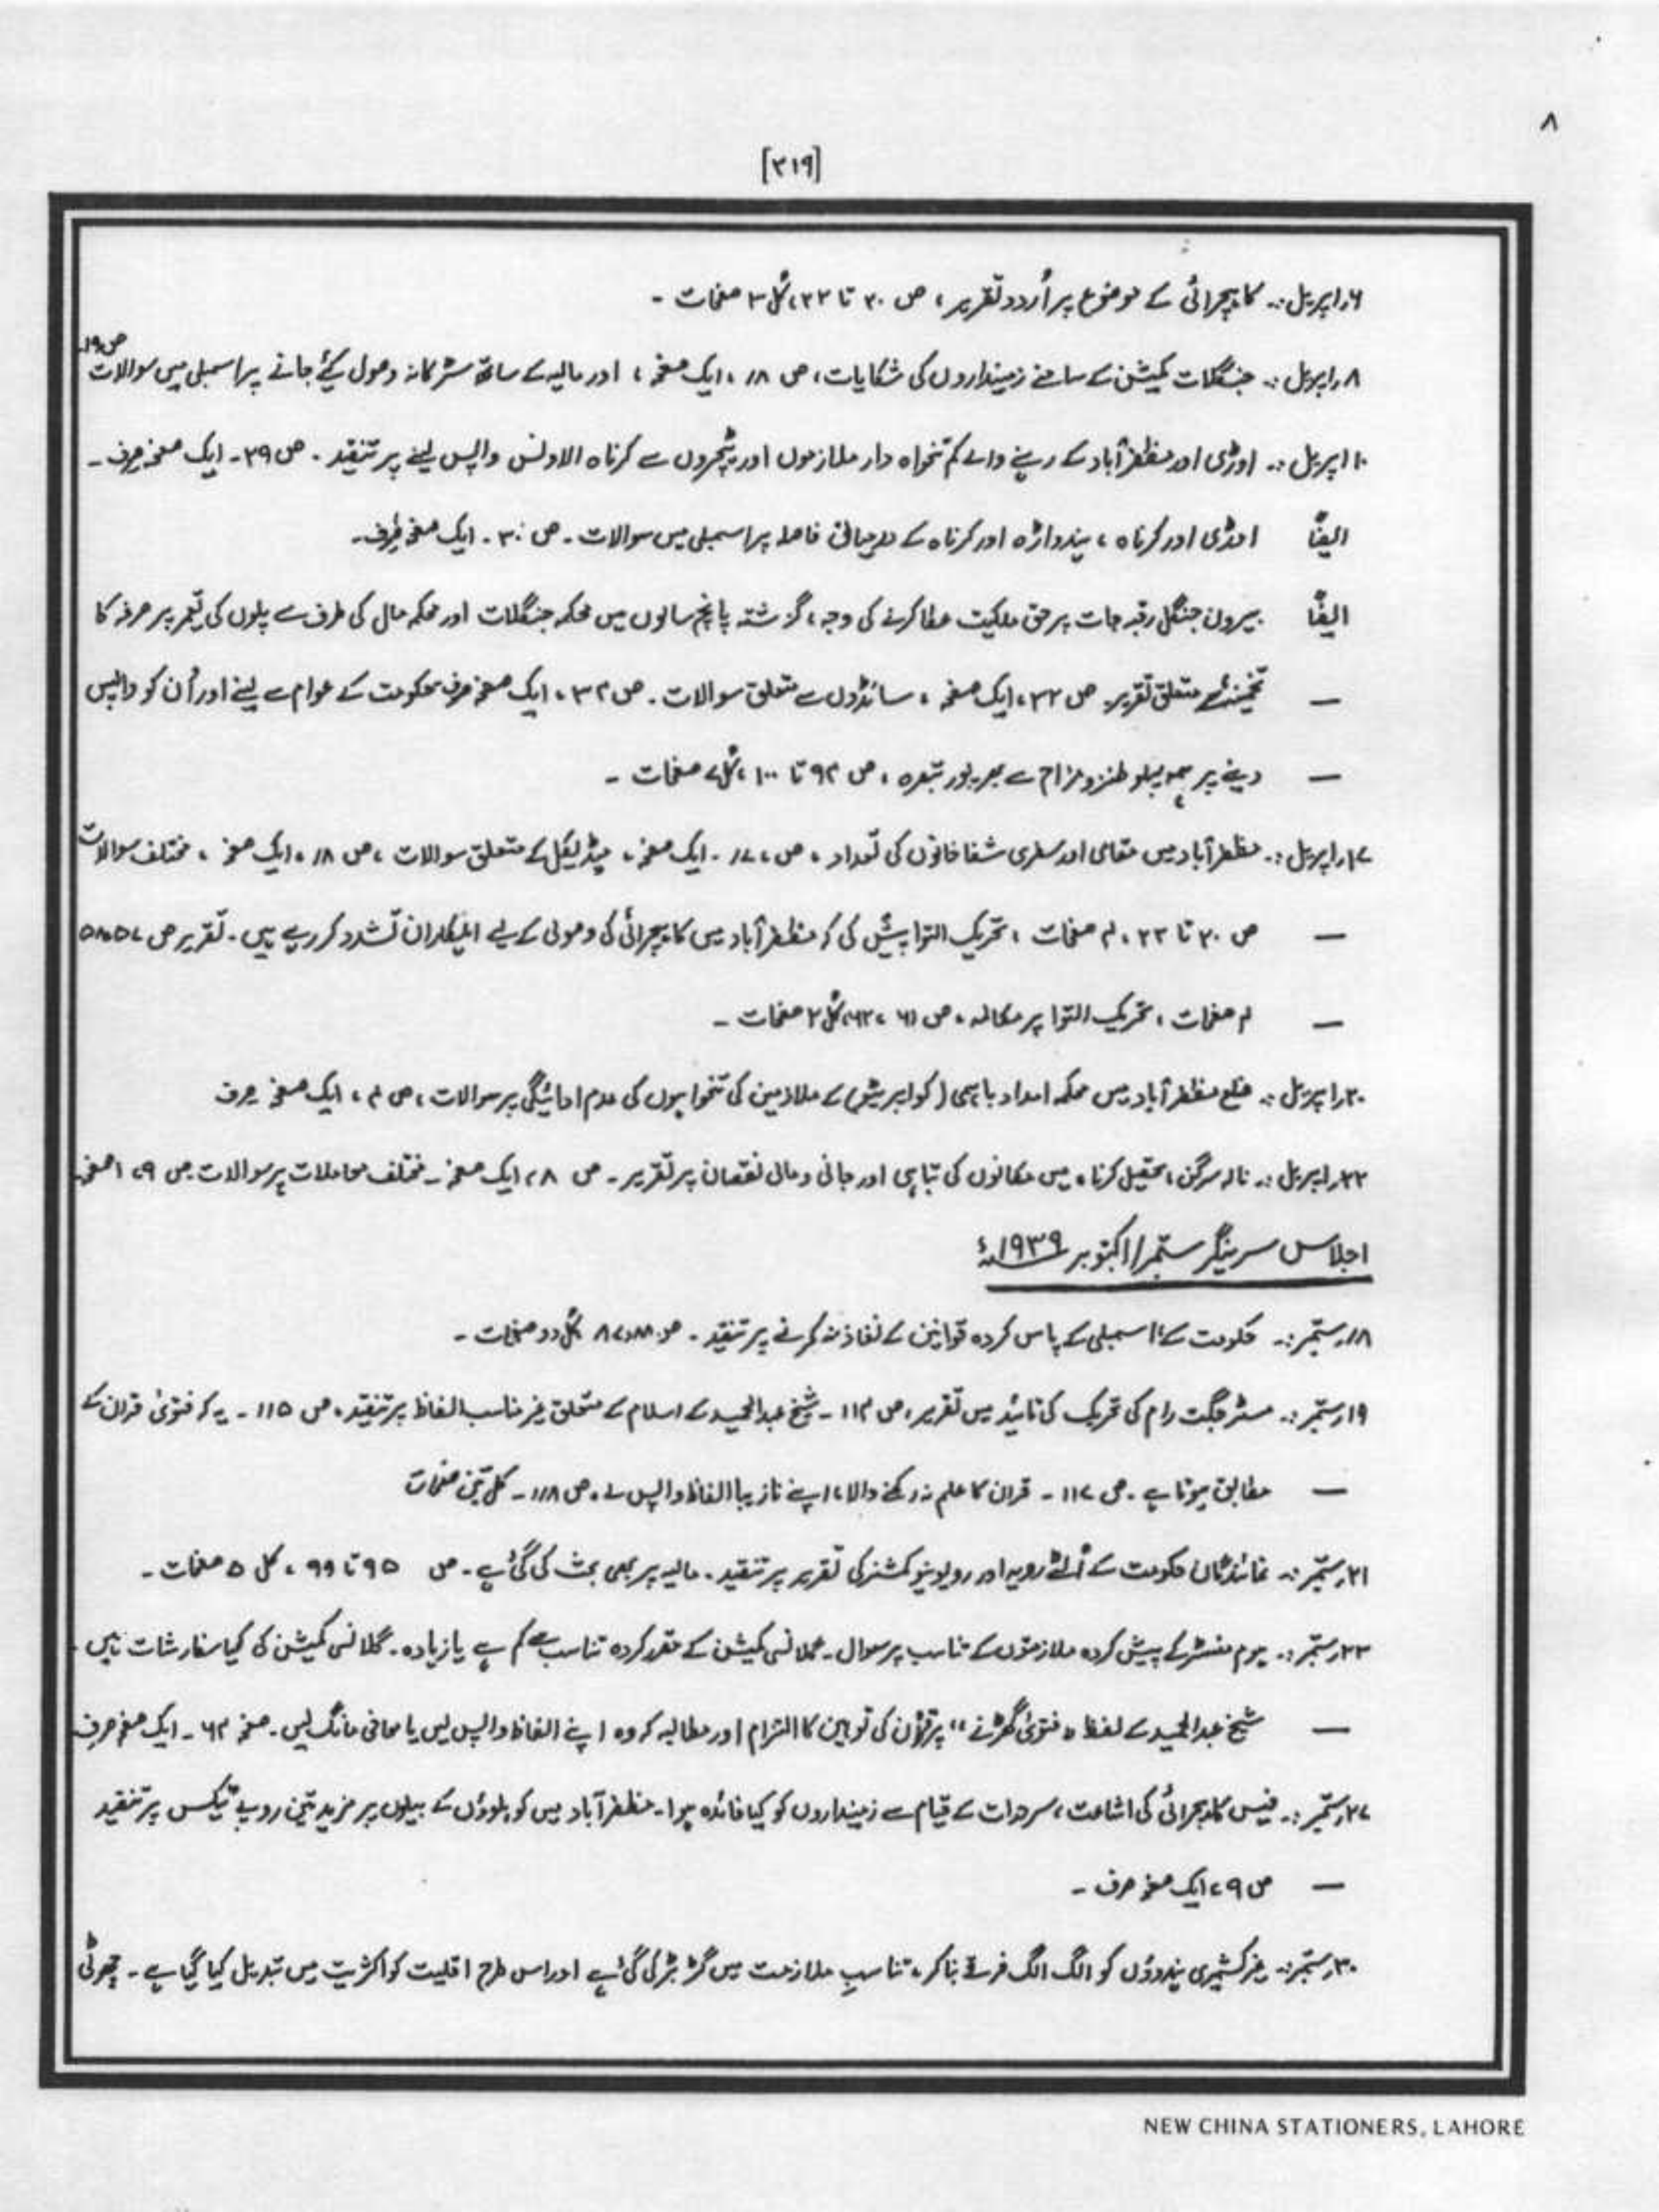 ۸
[۳۱۹]
۶؍اپریل :۔ کاہچرائی کے موضوع پر اُردو تقریر ، ص ۲۰ تا ۲۲، کُل ۳ صفحات ۔
ص۱۹۔
۸؍اپریل :۔ جنگلات کمیشن کے سامنے زمینداروں کی شکایات ، ص ۱۸، ایک صفحہ ، اور مالیہ کے ساتھ سڑکانہ وصول کیٔے جانے پر اسمبلی میں سوالات
۱۰اپریل :۔ اوڑی اور مظفرآباد کے رہنے والے کم تنخواہ دار ملازموں اور ٹیچروں سے کرناہ الاونس واپس لینے پر تنقید ۔ ص ۲۹۔ ایک صفحہ صرف ۔
ایضًا اوڑی اور کرناہ ، ہندواڑہ اور کرناہ کے درمیانی فاصلہ پر اسمبلی میں سوالات ۔ ص ۳۰ ۔ ایک صفحہ صرف۔
ایضًا بیرون جنگل رقبہ جات پر حق ملکیت عطا کرنے کی وجہ ، گزشتہ پانچ سالوں میں محکمہ جنگلات اور محکمہ مال کی طرف سے پلوں کی تعمیر پر صرفہ کا
— تخمینے سے متعلق تقریر۔ ص ۳۲، ایک صفحہ ، سانڈوں سے متعلق سوالات ۔ ص ۳۴، ایک صفحہ صرف حکومت کے عوام سے لینے اور اُن کو واپس
— دینے پر ہمہ پہلو طنزومزاح سے بھرپور تبصرہ ، ص ۹۴ تا ۱۰۰، کُل ۷ صفحات ۔
۱۷؍اپریل :۔ مظفرآباد میں مقامی اور سفری شفاخانوں کی تعداد ، ص ، ۱۷۔ ایک صفحہ ، میڈیکل کے متعلق سوالات ، ص ۱۸، ایک صفحہ ، مختلف سوالات
— ص ۲۰ تا ۲۳، ۴ صفحات ، تحریک التوا پیش کی کہ مظفرآباد میں کاہچرائی کی وصولی کے لیے اہلکاران تشدد کررہے ہیں ۔ تقریر ص ۵۷، ۵۸
— ۴ صفحات ، تحریک التوا پر مکالمہ ، ص ۶۱ ، ۶۲، کُل ۲ صفحات ۔
۲۰؍اپریل :۔ ضلع مظفرآباد میں محکمہ امداد باہمی (کوآپریٹو) کے ملازمین کی تنخواہوں کی عدم ادائیگی پر سوالات ، ص ۴ ، ایک صفحہ صرف
۲۲؍اپریل :۔ نالہ سرگن ، تحصیل کرناہ میں مکانوں کی تباہی اور جانی ومالی نقصان پر تقریر ۔ ص ۸، ایک صفحہ ۔ مختلف معاملات پر سوالات ص ۹، ۱صفحہ
اجلاس سرینگر ستمبر/اکتوبر ۱۹۳۹ء
۱۸؍ستمبر :۔ حکومت کے اسمبلی کے پاس کردہ قوانین کے نفاذ نہ کرنے پر تنقید ۔ ص ۸۷، ۸۸ کُل دو صفحات ۔
۱۹؍ستمبر :۔ مسٹر جگت رام کی تحریک کی تائید میں تقریر ، ص ۱۱۴ ۔ شیخ عبدالحمید کے اسلام کے متعلق غیر مناسب الفاظ پر تنقید ، ص ۱۱۵ ۔ یہ کہ فتویٰ قران کے
— مطابق ہوتا ہے ۔ ص ۱۱۷ ۔ قران کا علم نہ رکھنے والا ، اپنے نازیبا الفاظ واپس لے ، ص ۱۱۸ ۔ کل تین صفحات
۲۱؍ستمبر :۔ نمائندگان حکومت کے اُلٹے رویہ اور ریوینیو کمشنر کی تقریر پر تنقید ۔ مالیہ پر بھی بحث کی گئی ہے ۔ ص ۹۵ تا ۹۹ ، کل ۵ صفحات ۔
۲۳؍ستمبر :۔ ہوم منسٹر کے پیش کردہ ملازمتوں کے تناسب پر سوال ۔ گلانسی کمیشن کے مقرر کردہ تناسب سے کم ہے یا زیادہ ۔ گلانسی کمیشن کی کیا سفارشات ہیں ۔
— شیخ عبدالحمید کے لفظ ” فتویٰ گھڑنے “ پر قرآن کی توہین کا التزام اور مطالبہ کہ وہ اپنے الفاظ واپس لیں یا معافی مانگ لیں ۔ صفحہ ۶۴ ۔ ایک صفحہ صرف
۲۷؍ستمبر :۔ فیس کاہچرائی کی اشاعت ، سررات کے قیام سے زمینداروں کو کیا فائدہ ہوا ۔ مظفرآباد میں کوہلوؤں کے بیلوں پر مزید تین روپے ٹیکس پر تنقید
— ص ۹، ایک صفحہ صرف ۔
۳۰؍ستمبر :۔ غیر کشمیری ہندوؤں کو الگ الگ فرقے بنا کر ، تناسبِ ملازمت میں گڑبڑ کی گئی ہے اور اس طرح اقلیت کو اکثریت میں تبدیل کیا گیا ہے ۔ چھوٹی
NEW CHINA STATIONERS, LAHORE